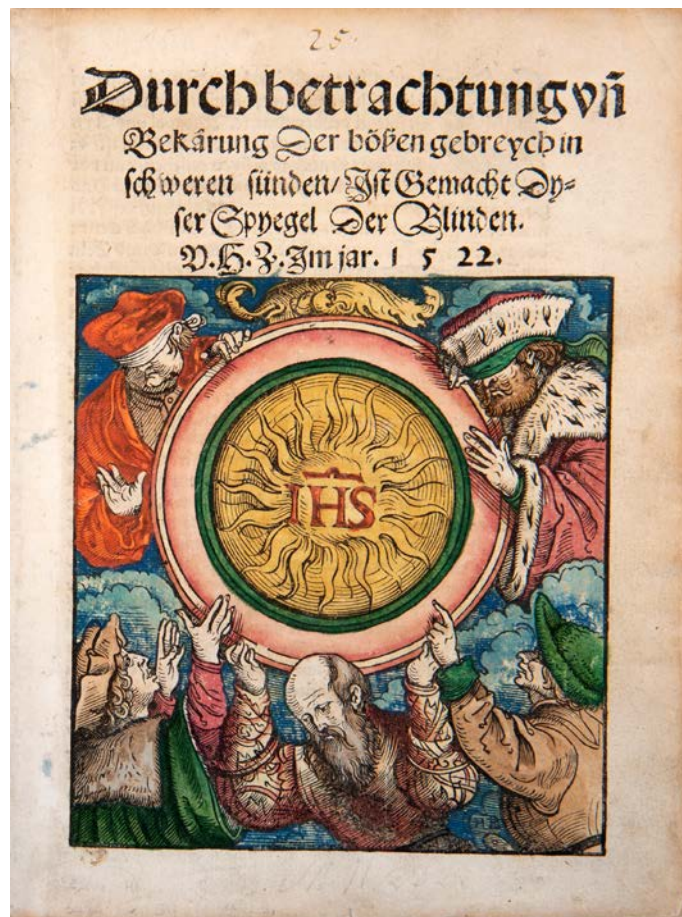 25.
Durch betrachtung vñ
Bekärung Der bößen gebreych in
schweren sünden/ Ist Gemacht Dy=
ser Spyegel Der Blinden.
V.H.Z. Im jar. 1 5 22.
IHS
HB